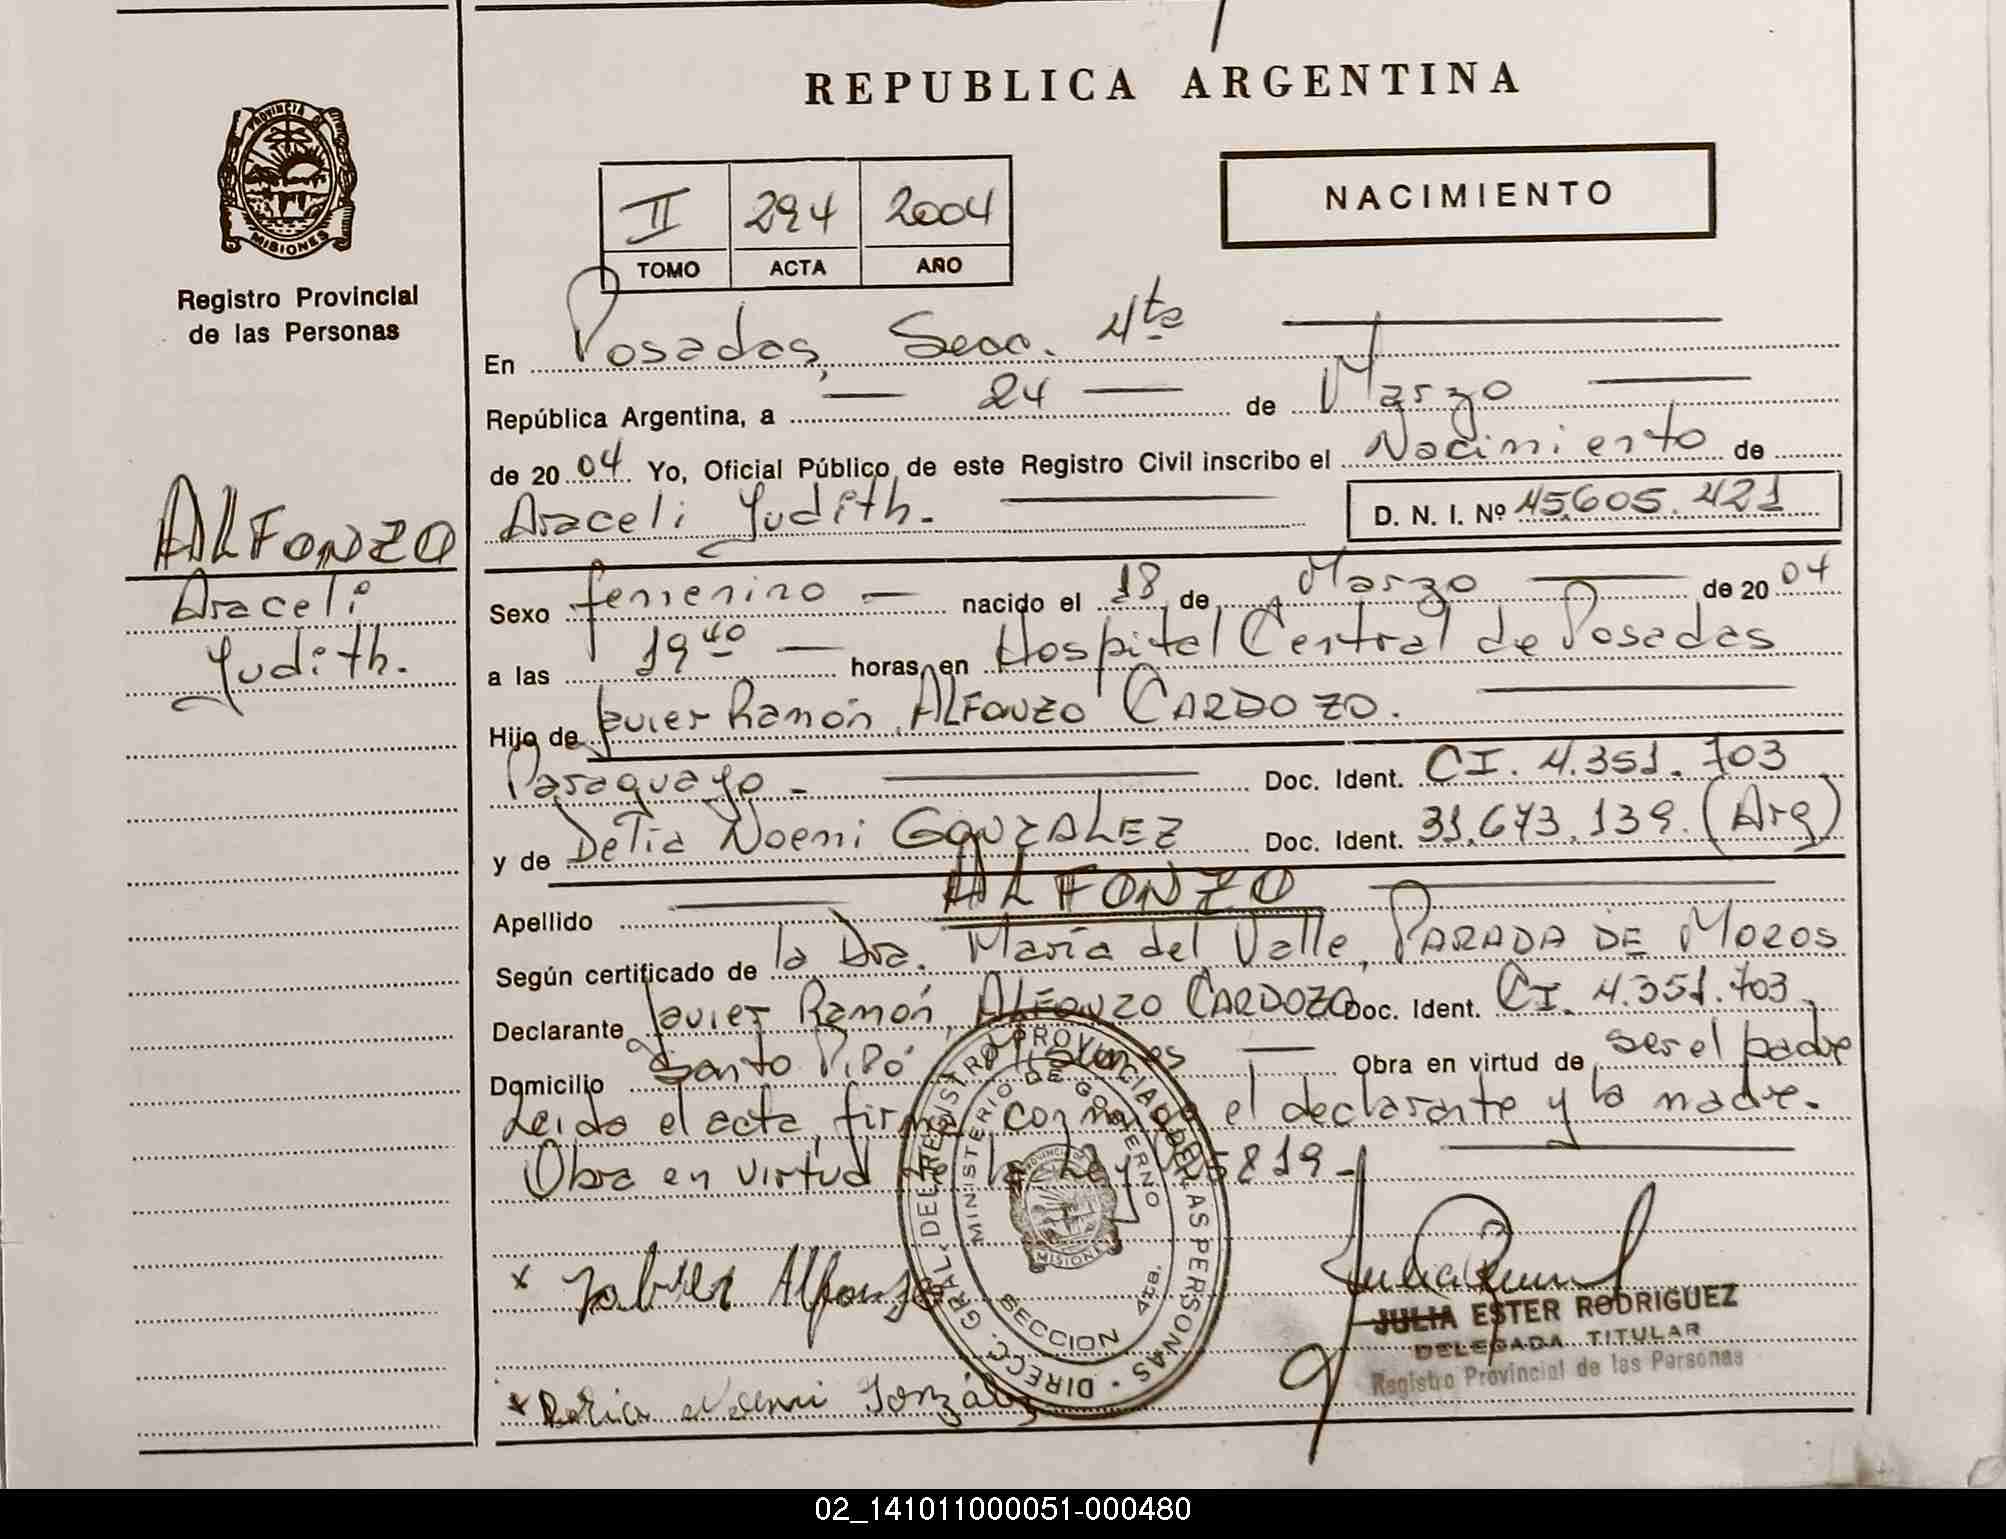 REPUBLICA ARGENTINA
PROVINCIA DE
MISIONES
Registro Provincial
de las Personas
II 294 2004
TOMO ACTA AÑO
NACIMIENTO
En Posadas, Secc. 4ta
República Argentina, a 24 de Marzo
de 2004 Yo, Oficial Público de este Registro Civil inscribo el Nacimiento de
Araceli Yudith.
D. N. I. Nº 45.605.421
ALFONZO
Araceli
Yudith.
Sexo femenino nacido el 18 de Marzo de 2004
a las 19 40 horas, en Hospital Central de Posadas
Hijo de Javier Ramón ALFONZO CARDOZO.
Paraguayo - Doc. Ident. CI. 4.351.703
y de Delia Noemi GONZALEZ Doc. Ident. 31.673.139. (Arg)
Apellido ALFONZO
Según certificado de la Dra. María del Valle PARADA DE MOROS
Declarante Javier Ramón ALFONZO CARDOZO Doc. Ident. CI. 4.351.703
Domicilio Santo Pipó Misiones Obra en virtud de ser el padre
Leida el acta, firma conmigo el declarante y la madre.
Obra en virtud de la Ley 25819-
DIRECC. GRAL. DEL REGISTRO PROVINCIAL DE LAS PERSONAS
MINISTERIO DE GOBIERNO
MISIONES
SECCION 4ta.
x Jabier Alfonzo
x Delia Noemi González
JULIA ESTER RODRIGUEZ
DELEGADA TITULAR
Registro Provincial de las Personas
02_141011000051-000480